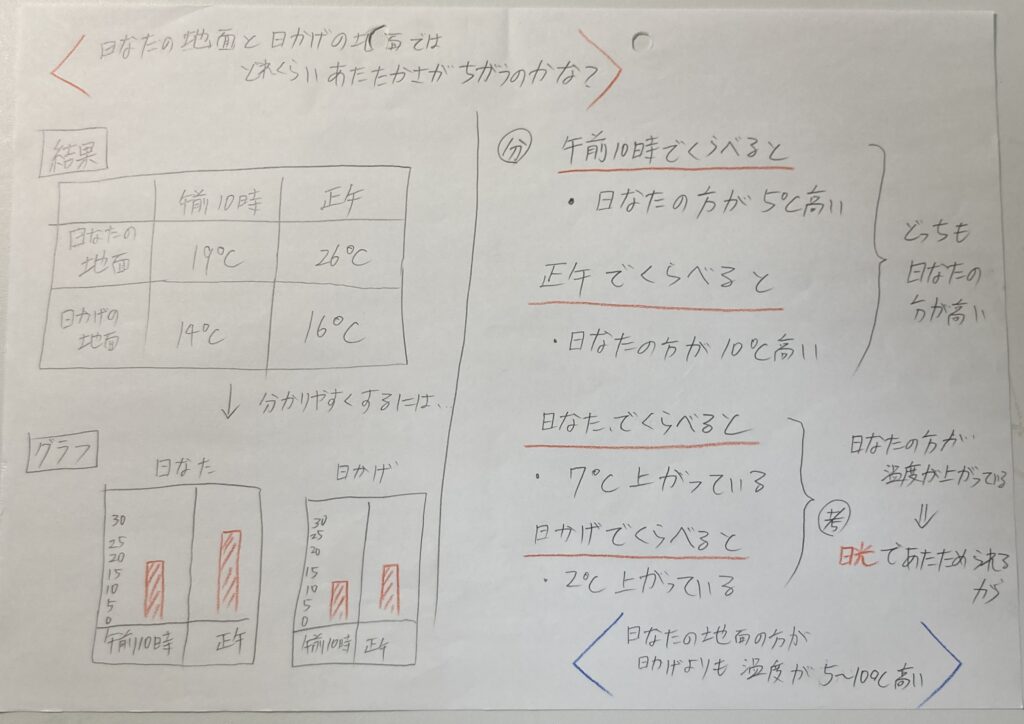 日なたの地面と日かげの地面では
どれくらいあたたかさがちがうのかな?
結果
午前10時 正午
日なたの
地面
19℃ 26℃
日かげの
地面
14℃ 16℃
↓ 分かりやすくするには、…
グラフ
日なた
30
25
20
15
10
5
0
午前10時 正午
日かげ
30
25
20
15
10
5
0
午前10時 正午
分
午前10時でくらべると
・日なたの方が5℃高い
正午でくらべると
・日なたの方が10℃高い
どっちも
日なたの
方が高い
日なたでくらべると
・7℃上がっている
日かげでくらべると
・2℃上がっている
考
日なたの方が
温度が上がっている
⇓
日光であたためられる
から
日なたの地面の方が
日かげよりも温度が5〜10℃高い